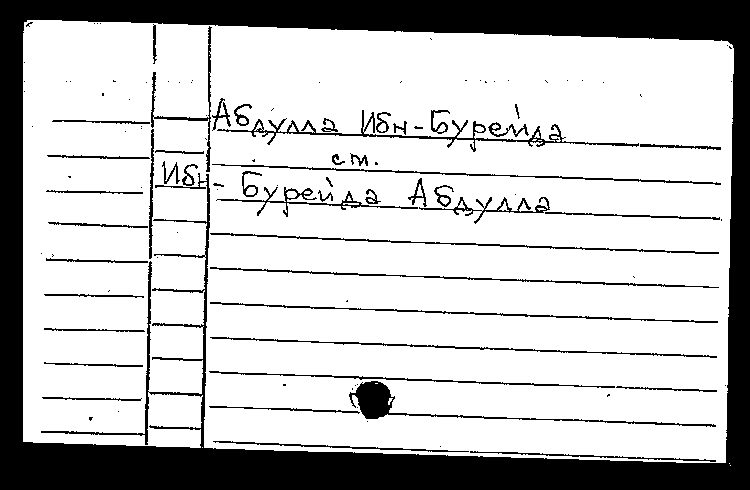 Абдулла Ибн-Бурейда
ст.
Ибн-Бурейда Абдулла